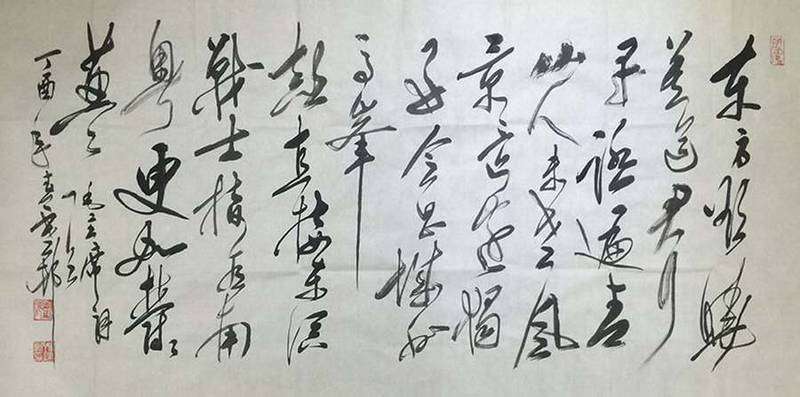 东方欲晓
莫道君行
早踏遍青
山人未老风
景这边独
好会昌城外
高峰
颠连直接东溟
战士指看南
粤更加郁郁
葱葱
毛主席词
丁酉年春